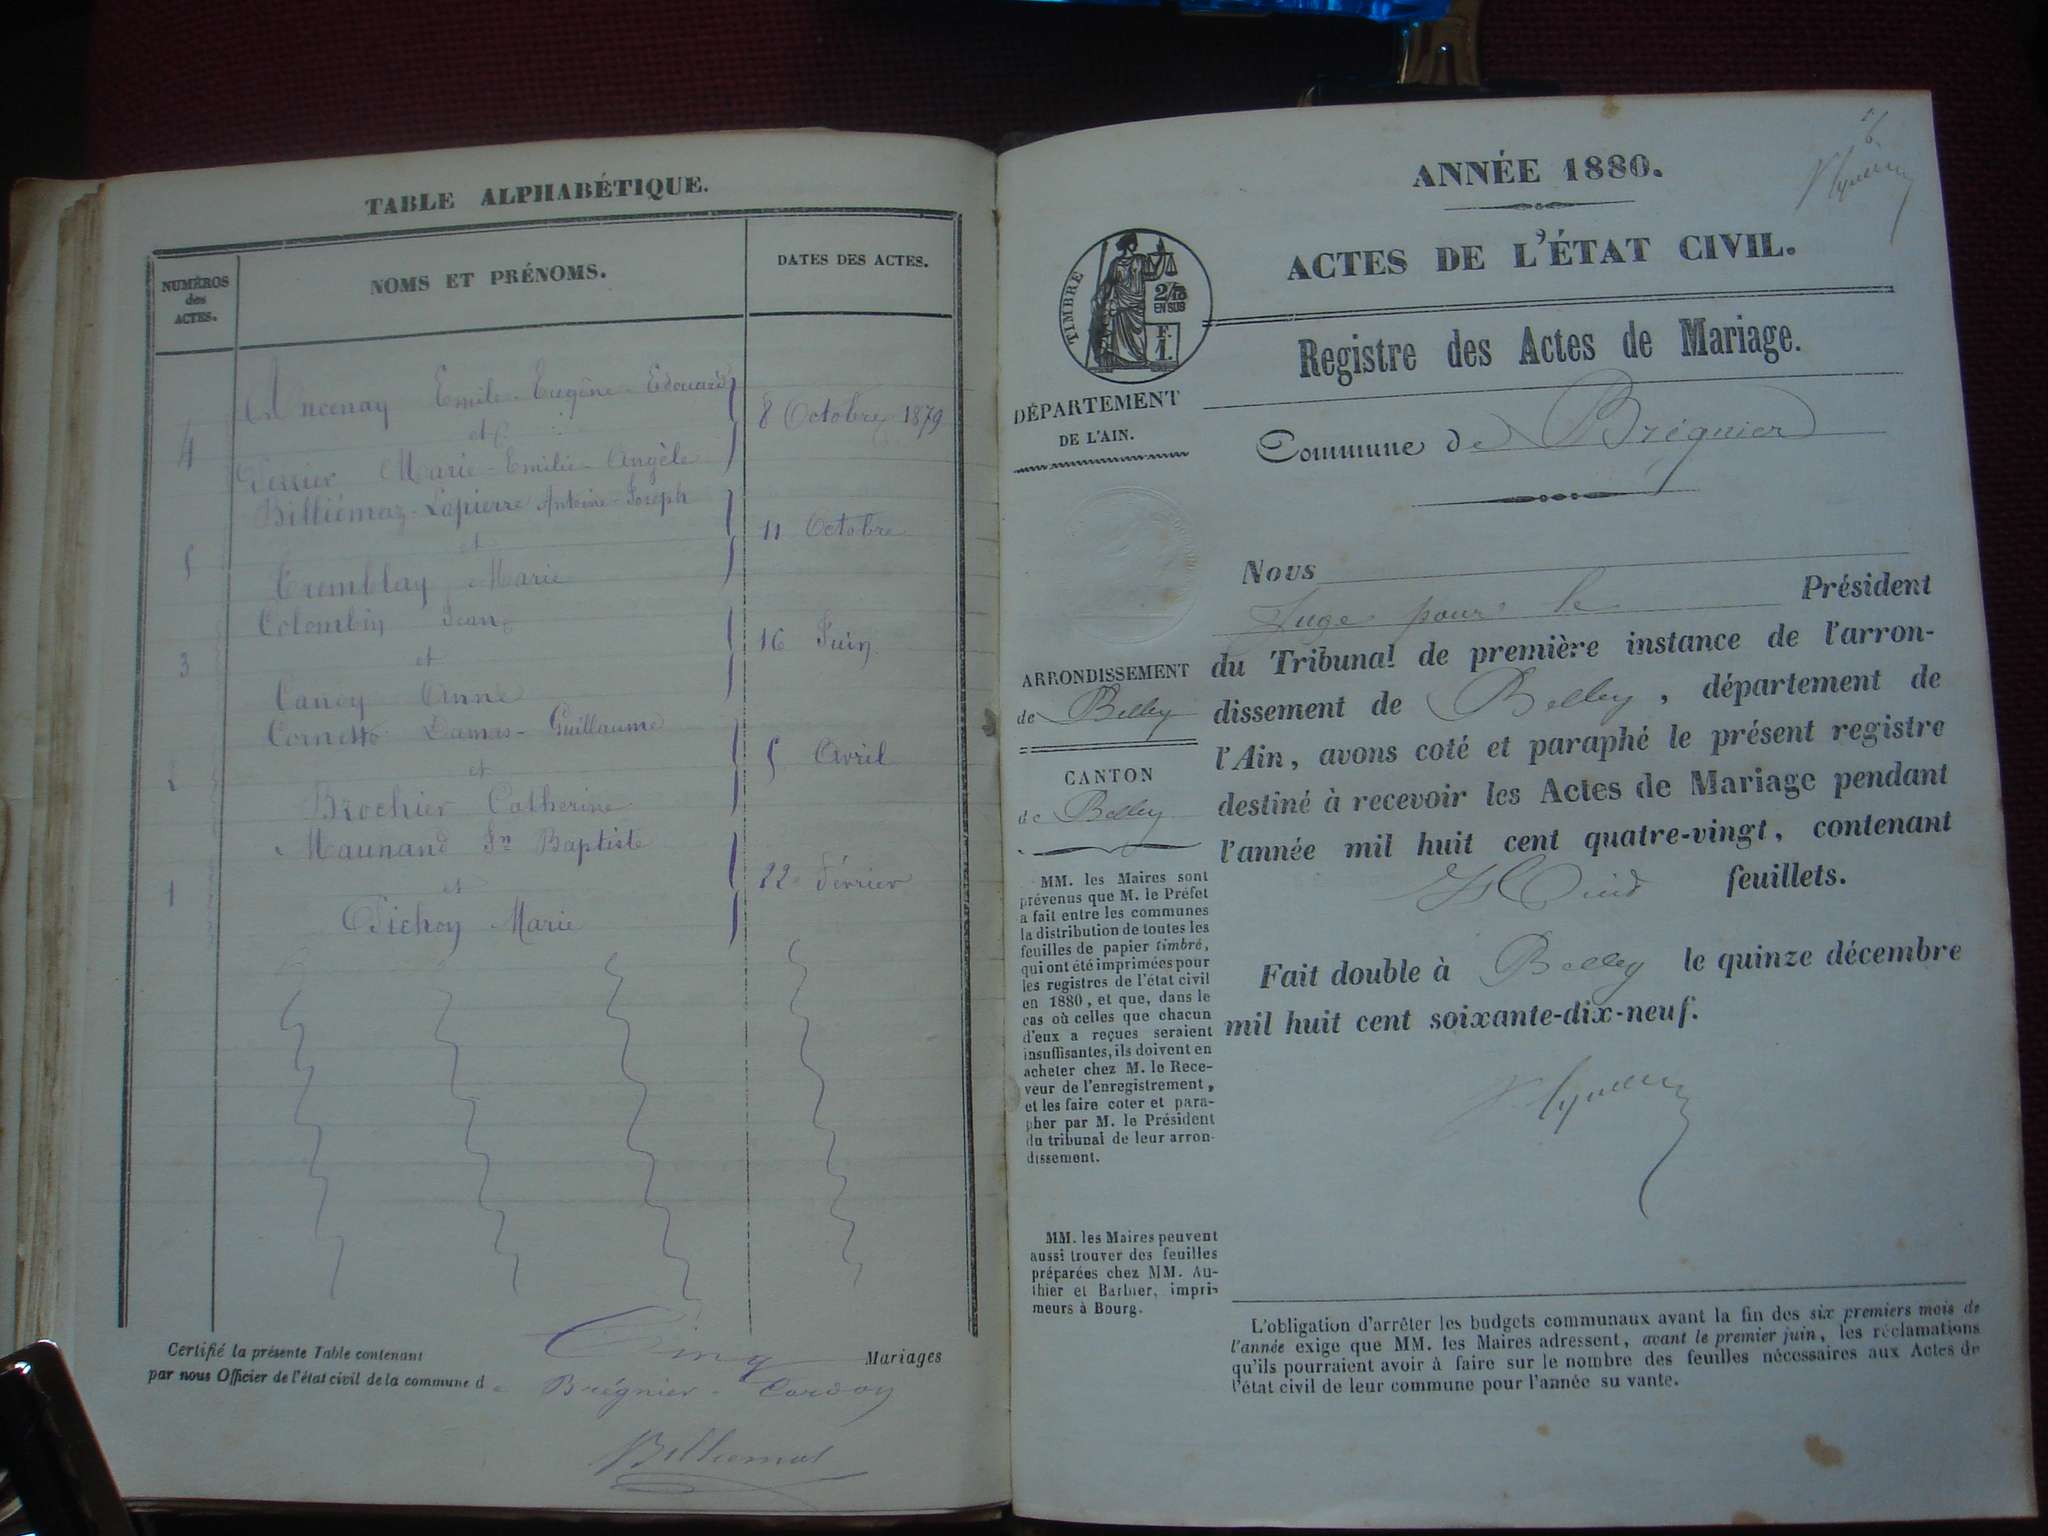 TABLE ALPHABÉTIQUE.
NUMÉROS
des
ACTES.
NOMS ET PRÉNOMS.
DATES DES ACTES.
Ancenay Emile-Eugène-Edouard
4
et
8 Octobre 1879
Marie-Emilie-Angèle
Billiémaz-Lapierre Antoine-Joseph
5
et
11 Octobre
Tremblay Marie
Colombin Jean
3
et
16 Juin
Cancy Anne
Damas-Guillaume
2
et
5 Avril
Brochier Catherine
Maunand Jn Baptiste
1
et
22 Février
Pichon Marie
Certifié la présente Table contenant Cinq Mariages
par nous Officier de l'état civil de la commune de Brégnier-Cordon
Billiemaz
ANNÉE 1880.
ACTES DE L'ÉTAT CIVIL.
TIMBRE
2/10
EN SUS
F.
1.
Registre des Actes de Mariage.
DÉPARTEMENT
DE L'AIN.
Commune de Brégnier
Nous
Juge pour le Président
du Tribunal de première instance de l'arron-
dissement de Belley, département de
l'Ain, avons coté et paraphé le présent registre
destiné à recevoir les Actes de Mariage pendant
l'année mil huit cent quatre-vingt, contenant
feuillets.
Fait double à Belley le quinze décembre
mil huit cent soixante-dix-neuf.
ARRONDISSEMENT
de Belley
CANTON
de Belley
MM. les Maires sont
prévenus que M. le Préfet
a fait entre les communes
la distribution de toutes les
feuilles de papier timbré,
qui ont été imprimées pour
les registres de l'état civil
en 1880, et que, dans le
cas où celles que chacun
d'eux a reçues seraient
insuffisantes, ils doivent en
acheter chez M. le Rece-
veur de l'enregistrement,
et les faire coter et para-
pher par M. le Président
du tribunal de leur arron-
dissement.
MM. les Maires peuvent
aussi trouver des feuilles
préparées chez MM. Au-
thier et Barbier, impri-
meurs à Bourg.
L'obligation d'arrêter les budgets communaux avant la fin des six premiers mois de
l'année exige que MM. les Maires adressent, avant le premier juin, les réclamations
qu'ils pourraient avoir à faire sur le nombre des feuilles nécessaires aux Actes de
l'état civil de leur commune pour l'année su vante.